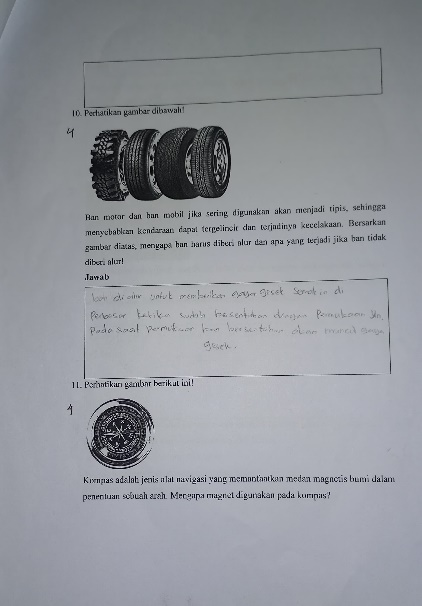 10. Perhatikan gambar dibawah!
4
Ban motor dan ban mobil jika sering digunakan akan menjadi tipis, sehingga
menyebabkan kendaraan dapat tergelincir dan terjadinya kecelakaan. Bersarkan
gambar diatas, mengapa ban harus diberi alur dan apa yang terjadi jika ban tidak
diberi alur!
Jawab
ban di alur untuk memberikan gaya gesek semakin di
Perbesar ketika sudah bersentuhan dengan Permukaan Jln
Pada saat permukaan ban bersentuhan akan muncul gaya
gesek.
11. Perhatikan gambar berikut ini!
4
Kompas adalah jenis alat navigasi yang memanfaatkan medan magnetis bumi dalam
penentuan sebuah arah. Mengapa magnet digunakan pada kompas?